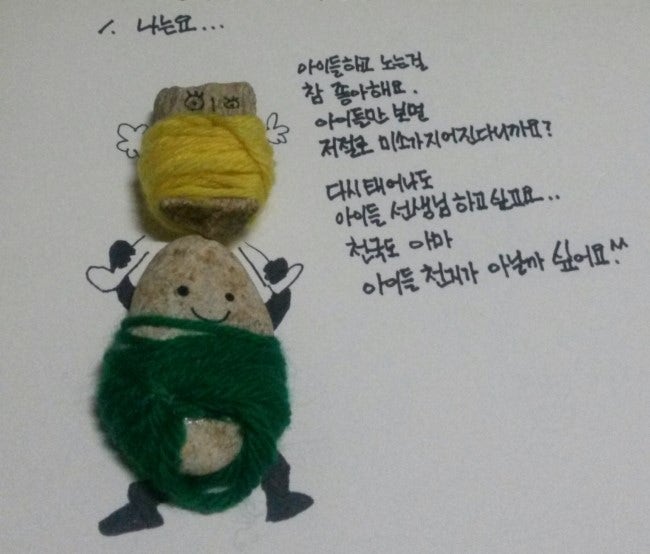 1. 나는요...
아이들하고 노는걸
참 좋아해요.
아이들만 보면
저절로 미소가지어진다니까요?
다시태어나도
아이들 선생님 하고싶고요...
천국도 아마
아이들 천지가 아닐까 싶어요!^^